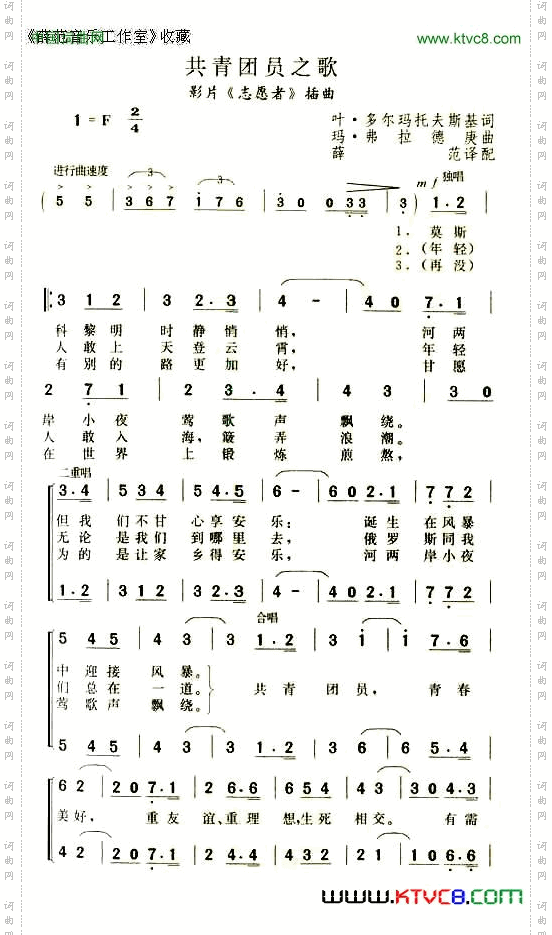 《薛范音乐工作室》收藏
www.ktvc8.com
共青团员之歌
影片《志愿者》插曲
1 = F 2/4
叶·多尔玛托夫斯基词
玛·弗拉德庚曲
薛 范译配
进行曲速度
mf 独唱
( 5 5 | 3 6 7 | i 7 6 | 3 0 0 3 3 | 3 ) 1·2 |
1. 莫斯
2.(年轻)
3.(再没)
3 1 2 | 3 2·3 | 4 - | 4 0 7·1 |
科黎明 时静悄悄, 河两
人敢上 天登云霄, 年轻
有别的 路更加好, 甘愿
2 7 1 | 2 3·4 | 4 3 | 3 0
岸小夜 莺歌声飘绕。
人敢入 海,簸弄浪潮。
在世界 上锻炼煎熬,
二重唱
3·4 | 5 3 4 | 5 4·5 | 6 - | 6 0 2·1 | 7 7 2
但我 们不甘 心享安乐; 诞生 在风暴
无论 是我们 到哪里去, 俄罗 斯同我
为的 是让家 乡得安乐, 河两 岸小夜
1·2 | 3 1 2 | 3 2·3 | 4 - | 4 0 2·1 | 7 7 2
合唱
5 4 5 | 4 3 | 3 1·2 | 3 i | i 7·6
中迎接 风暴。
们总在 一道。
莺歌声 飘绕。
共青团员, 青春
5 4 5 | 4 3 | 3 1·2 | 3 6 | 4 4·2
6 2 | 2 0 7·1 | 2 6·6 | 5 4 | 4 3 | 3 0 4·3
美好, 重友 谊、重理 想,生死 相交。 有需
4 2 | 2 0 7·1 | 2 2·2 | 2 2 | 2 1 | 1 0 6·6
www.KTVC8.com
词曲网